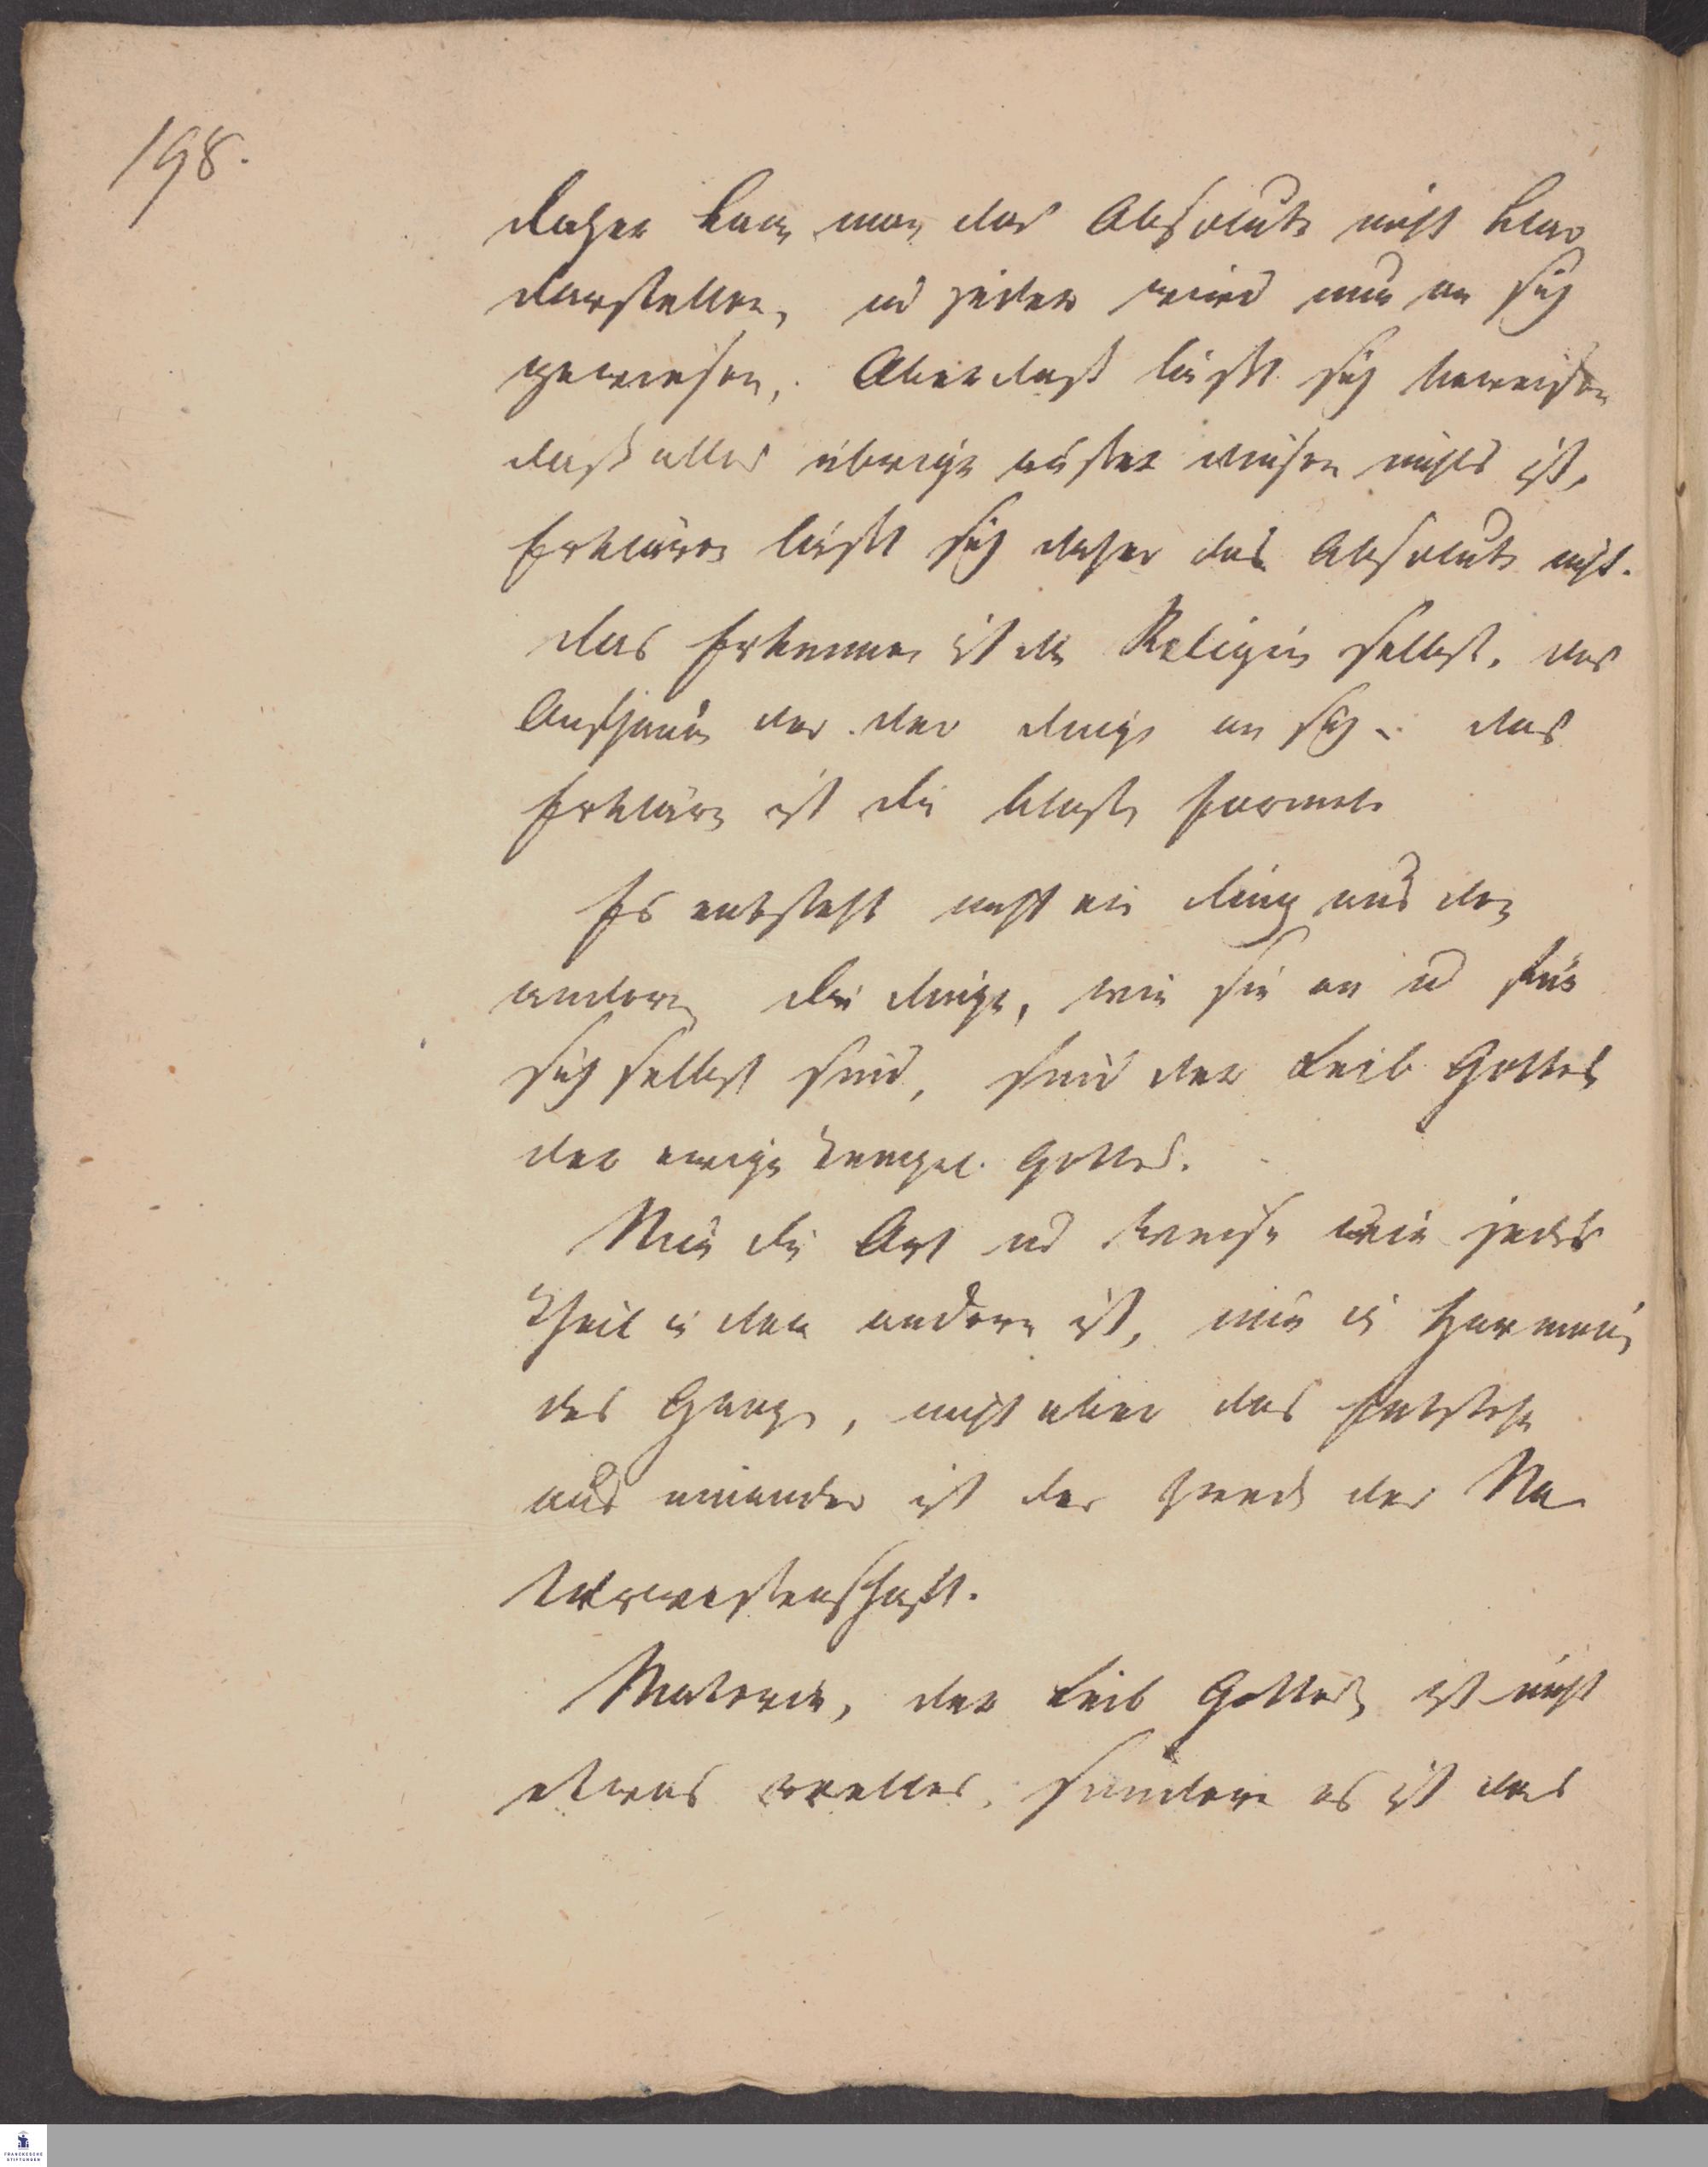 198.
Daher kan man das Absolute nicht klar
darstellen, ud jeder wird nur an sich
gewiesen. Aber das läßt sich beweisen
daß alles übrige außer diesen nichts ist,
Erklären läßt sich daher das Absolute nicht.
das Erkennen ist die Religion selbst, das
Anschaun der der dinge an sich. das
Erklären ist die bloße Formel.
Es entsteht nicht ein ding aus dem
andern die dinge, wie sie an ud für
sich selbst sind, sind der Leib Gottes
der ewige Tempel Gottes.
Nur die Art ud Weise wie jeder
Theil in dem andern ist, nur die Harmonie
des Ganzen, nicht aber das Entstehen
aus einander ist der Zweck der Na
turwissenschaft.
Materie, der Leib Gottes ist nicht
etwas reelles, sondern es ist das
FRANCKESCHE
STIFTUNGEN